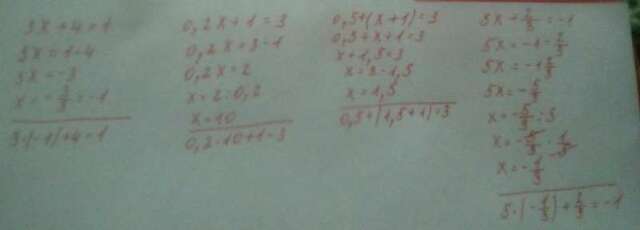 3x+4=1
3x=1-4
3x=-3
x=-3/3=-1
3·(-1)+4=1
0,2x+1=3
0,2x=3-1
0,2x=2
x=2:0,2
x=10
0,2·10+1=3
0,5+(x+1)=3
0,5+x+1=3
x+1,5=3
x=3-1,5
x=1,5
0,5+(1,5+1)=3
5x+2/3=-1
5x=-1-2/3
5x=-1 2/3
5x=-5/3
x=-5/3:5
x=-5/3·1/5
x=-1/3
5·(-1/3)+2/3=-1